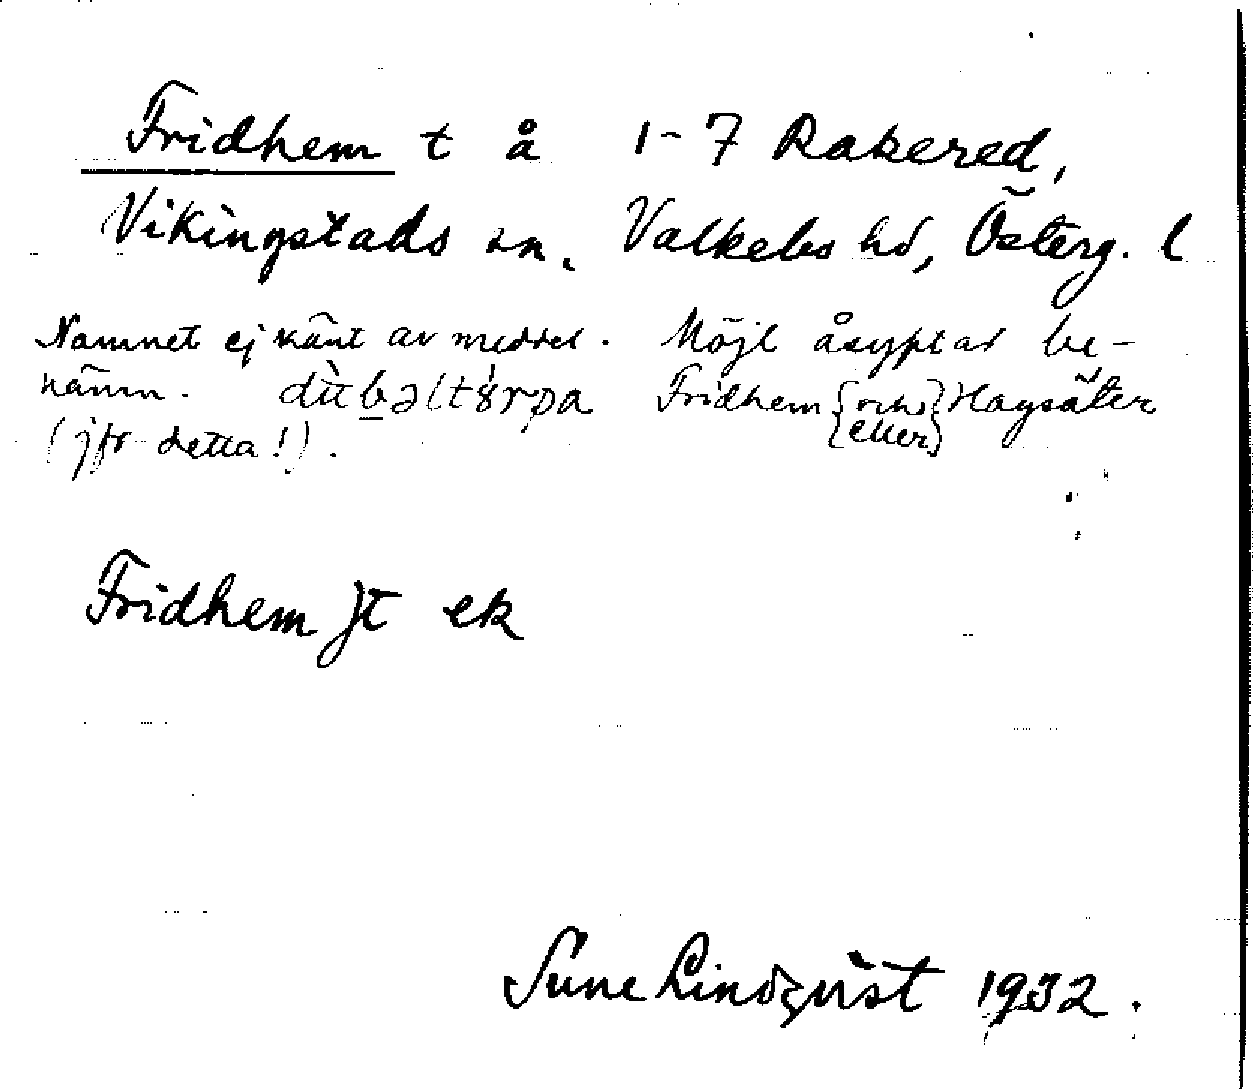 Fridhem t å 1-7 Rakered,
Vikingstads sn. Valkebs hd, Österg. l
Namnet ej känt av meddel. Möjl åsyftar be-
nämn. dùbəltɤ̀rpa Fridhem {och/eller} Hagsäter
(jfr detta!).
Fridhem jt ek
Sune Lindqvist 1932.